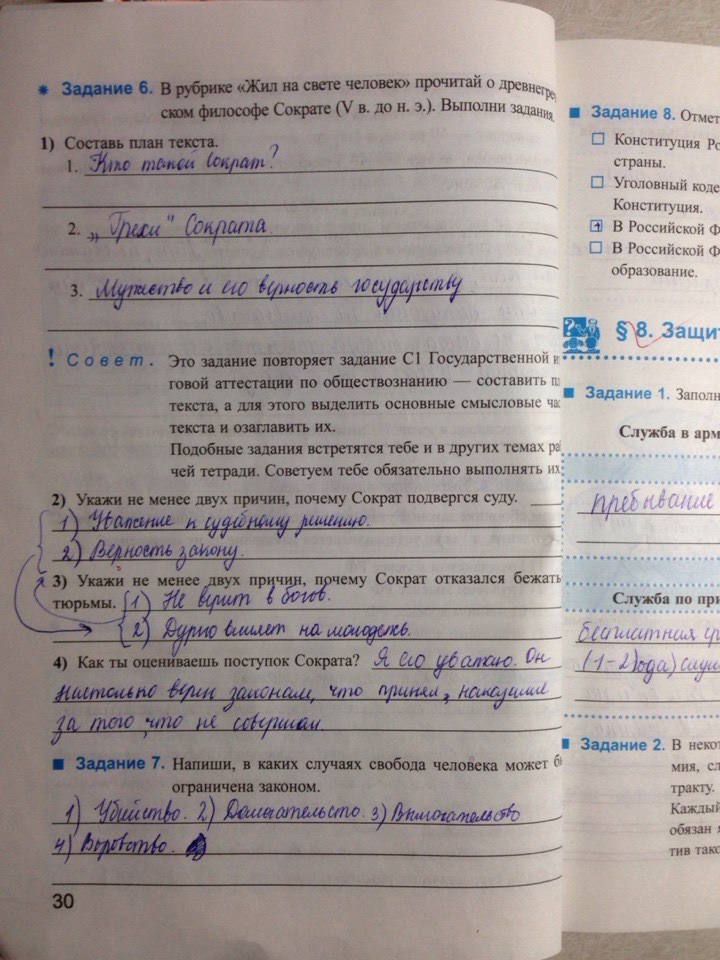 * Задание 6. В рубрике «Жил на свете человек» прочитай о древнегре
ском философе Сократе (V в. до н. э.). Выполни задания.
1) Составь план текста.
1. Кто такой Сократ?
2. „Грехи" Сократа
3. Мужество и его верность государству
! Совет. Это задание повторяет задание С1 Государственной и
говой аттестации по обществознанию — составить пл
текста, а для этого выделить основные смысловые час
текста и озаглавить их.
Подобные задания встретятся тебе и в других темах ра
чей тетради. Советуем тебе обязательно выполнять их
2) Укажи не менее двух причин, почему Сократ подвергся суду.
1) Уважение к судебному решению.
2) Верность закону.
3) Укажи не менее двух причин, почему Сократ отказался бежать
тюрьмы. 1) Не верит в богов.
2) Дурно влияет на молодежь.
4) Как ты оцениваешь поступок Сократа? Я его уважаю. Он
настолько верен законам, что принял, наказание
за того, что не совершал
Задание 7. Напиши, в каких случаях свобода человека может б
ограничена законом.
1) Убийство. 2) Домагательство. 3) Вымогательство
4) Воровство.
30
Задание 8. Отмет
Конституция Ро
страны.
Уголовный коде
Конституция.
В Российской Ф
В Российской Ф
образование.
§ 8. Защит
Задание 1. Заполн
Служба в арм
пребывание
Служба по при
бесплатная
(1-2)года)
Задание 2. В некот
мия, сл
тракту.
Каждый
обязан я
тив тако